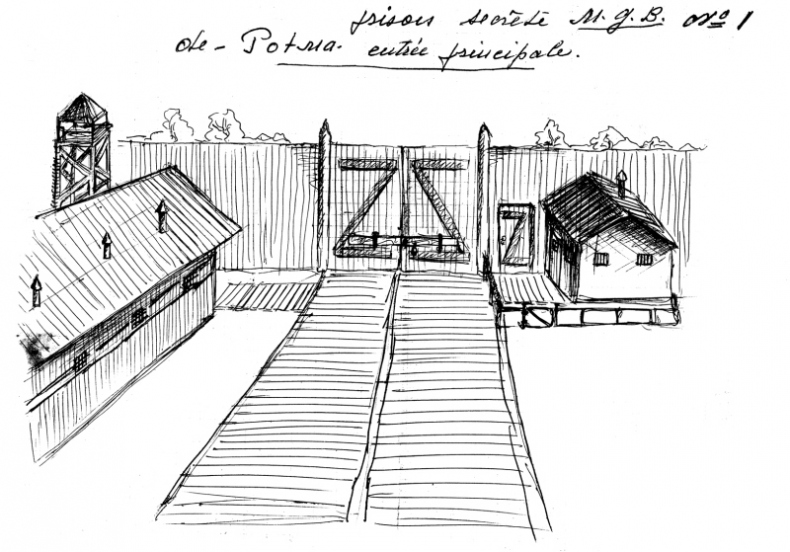 prison secrète M.G.B. No 1
de - Potma. entrée principale.